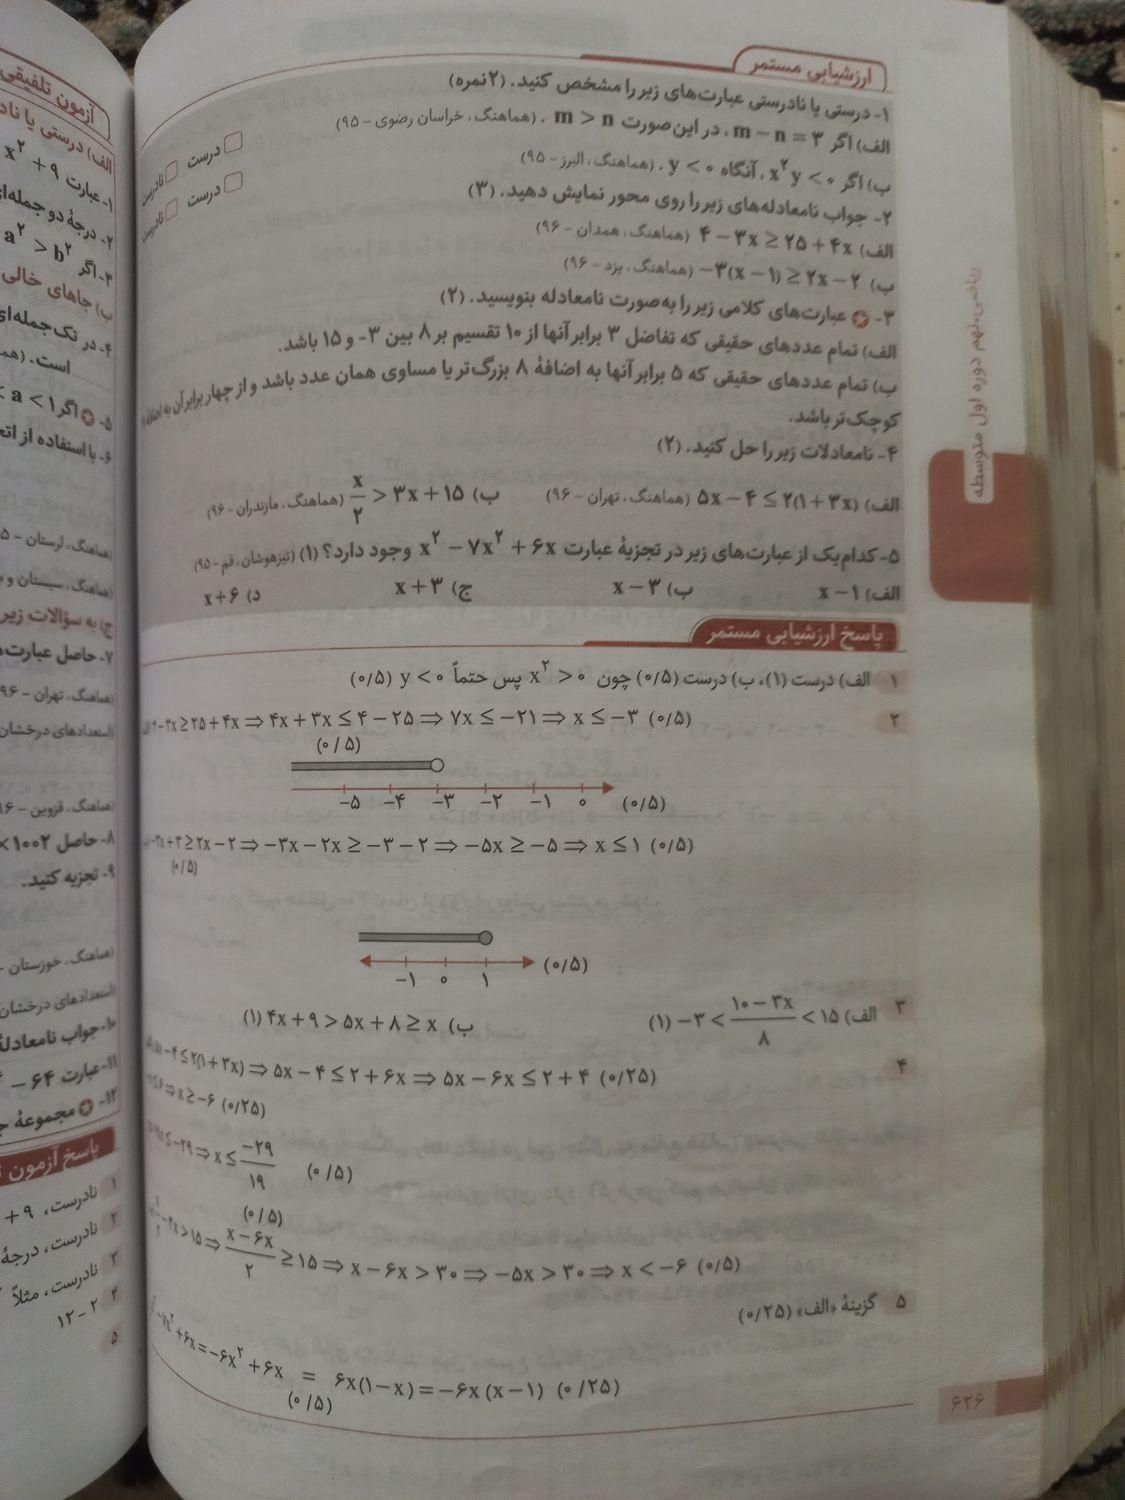 ارزشیابی مستمر
۱- درستی یا نادرستی عبارت‌های زیر را مشخص کنید. (۲ نمره)
الف) اگر m − n = ۳ ، در این صورت m > n . (هماهنگ، خراسان رضوی - ۹۵)
درست
ب) اگر x²y < ۰ ، آنگاه y < ۰ . (هماهنگ، البرز - ۹۵)
درست
۲- جواب نامعادله‌های زیر را روی محور نمایش دهید. (۳)
الف) ۴ − ۳x ≥ ۲۵ + ۴x (هماهنگ، همدان - ۹۶)
ب) −۳(x − ۱) ≥ ۲x − ۲ (هماهنگ، یزد - ۹۶)
۳- عبارت‌های کلامی زیر را به صورت نامعادله بنویسید. (۲)
الف) تمام عددهای حقیقی که تفاضل ۳ برابر آنها از ۱۰ تقسیم بر ۸ بین ۳- و ۱۵ باشد.
ب) تمام عددهای حقیقی که ۵ برابر آنها به اضافهٔ ۸ بزرگ‌تر یا مساوی همان عدد باشد و از چهار برابر آن به اضافهٔ
کوچک‌تر باشد.
۴- نامعادلات زیر را حل کنید. (۲)
الف) ۵x − ۴ ≤ ۲(۱ + ۳x) (هماهنگ، تهران - ۹۶) ب) x/۲ > ۳x + ۱۵ (هماهنگ، مازندران - ۹۶)
۵- کدام یک از عبارت‌های زیر در تجزیهٔ عبارت x² − ۷x² + ۶x وجود دارد؟ (۱) (تیزهوشان، قم - ۹۵)
الف) x − ۱ ب) x − ۳ ج) x + ۳ د) x + ۶
پاسخ ارزشیابی مستمر
۱ الف) درست (۱)، ب) درست (۰/۵) چون x² > ۰ پس حتماً y < ۰ (۰/۵)
۲ ۴−۳x ≥ ۲۵ + ۴x ⇒ ۴x + ۳x ≤ ۴ − ۲۵ ⇒ ۷x ≤ −۲۱ ⇒ x ≤ −۳ (۰/۵)
(۰/۵)
−۵ −۴ −۳ −۲ −۱ ۰ (۰/۵)
−۳x+۳ ≥ ۲x − ۲ ⇒ −۳x − ۲x ≥ −۳ − ۲ ⇒ −۵x ≥ −۵ ⇒ x ≤ ۱ (۰/۵)
(۰/۵)
−۱ ۰ ۱ (۰/۵)
۳ الف) −۳ < (۱۰ − ۳x)/۸ < ۱۵ (۱) ب) ۴x + ۹ > ۵x + ۸ ≥ x (۱)
۴ ۵x−۴ ≤ ۲(۱+۳x) ⇒ ۵x − ۴ ≤ ۲ + ۶x ⇒ ۵x − ۶x ≤ ۲ + ۴ (۰/۲۵)
⇒ x ≥ −۶ (۰/۲۵)
≤ −۲۹ ⇒ x ≤ −۲۹/۱۹ (۰/۵)
(۰/۵)
−۳x > ۱۵ ⇒ (x − ۶x)/۲ ≥ ۱۵ ⇒ x − ۶x > ۳۰ ⇒ −۵x > ۳۰ ⇒ x < −۶ (۰/۵)
۵ گزینهٔ «الف» (۰/۲۵)
−۷x² + ۶x = −۶x² + ۶x = ۶x(۱−x) = −۶x(x−۱) (۰/۲۵)
(۰/۵)
ریاضی نهم دوره اول متوسطه
۶۲۶
آزمون تلفیقی
الف) درستی یا
۱- عبارت x² + ۹
۲- درجهٔ دو جمله‌ای
۳- اگر a² > b²
ب) جاهای خالی
۴- در تک جمله‌ای
است.
۵- اگر a < ۱
۶- با استفاده از
(هماهنگ، لرستان -
(هماهنگ، سیستان و
ج) به سؤالات زیر
۷- حاصل عبارت‌
(هماهنگ، تهران - ۹۶
(استعدادهای درخشان
(هماهنگ، قزوین - ۹۶
۸- حاصل ۱۰۰۲×
۹- تجزیه کنید.
(هماهنگ، خوزستان -
(استعدادهای درخشان
۱۰- جواب نامعادلهٔ
۱۱- عبارت ۶۴ −
۱۲- مجموعهٔ
پاسخ آزمون
۱ نادرست، ۹ +
۲ نادرست، درجهٔ
۳ نادرست، مثلاً
۴ ۱۲ − ۲
۵